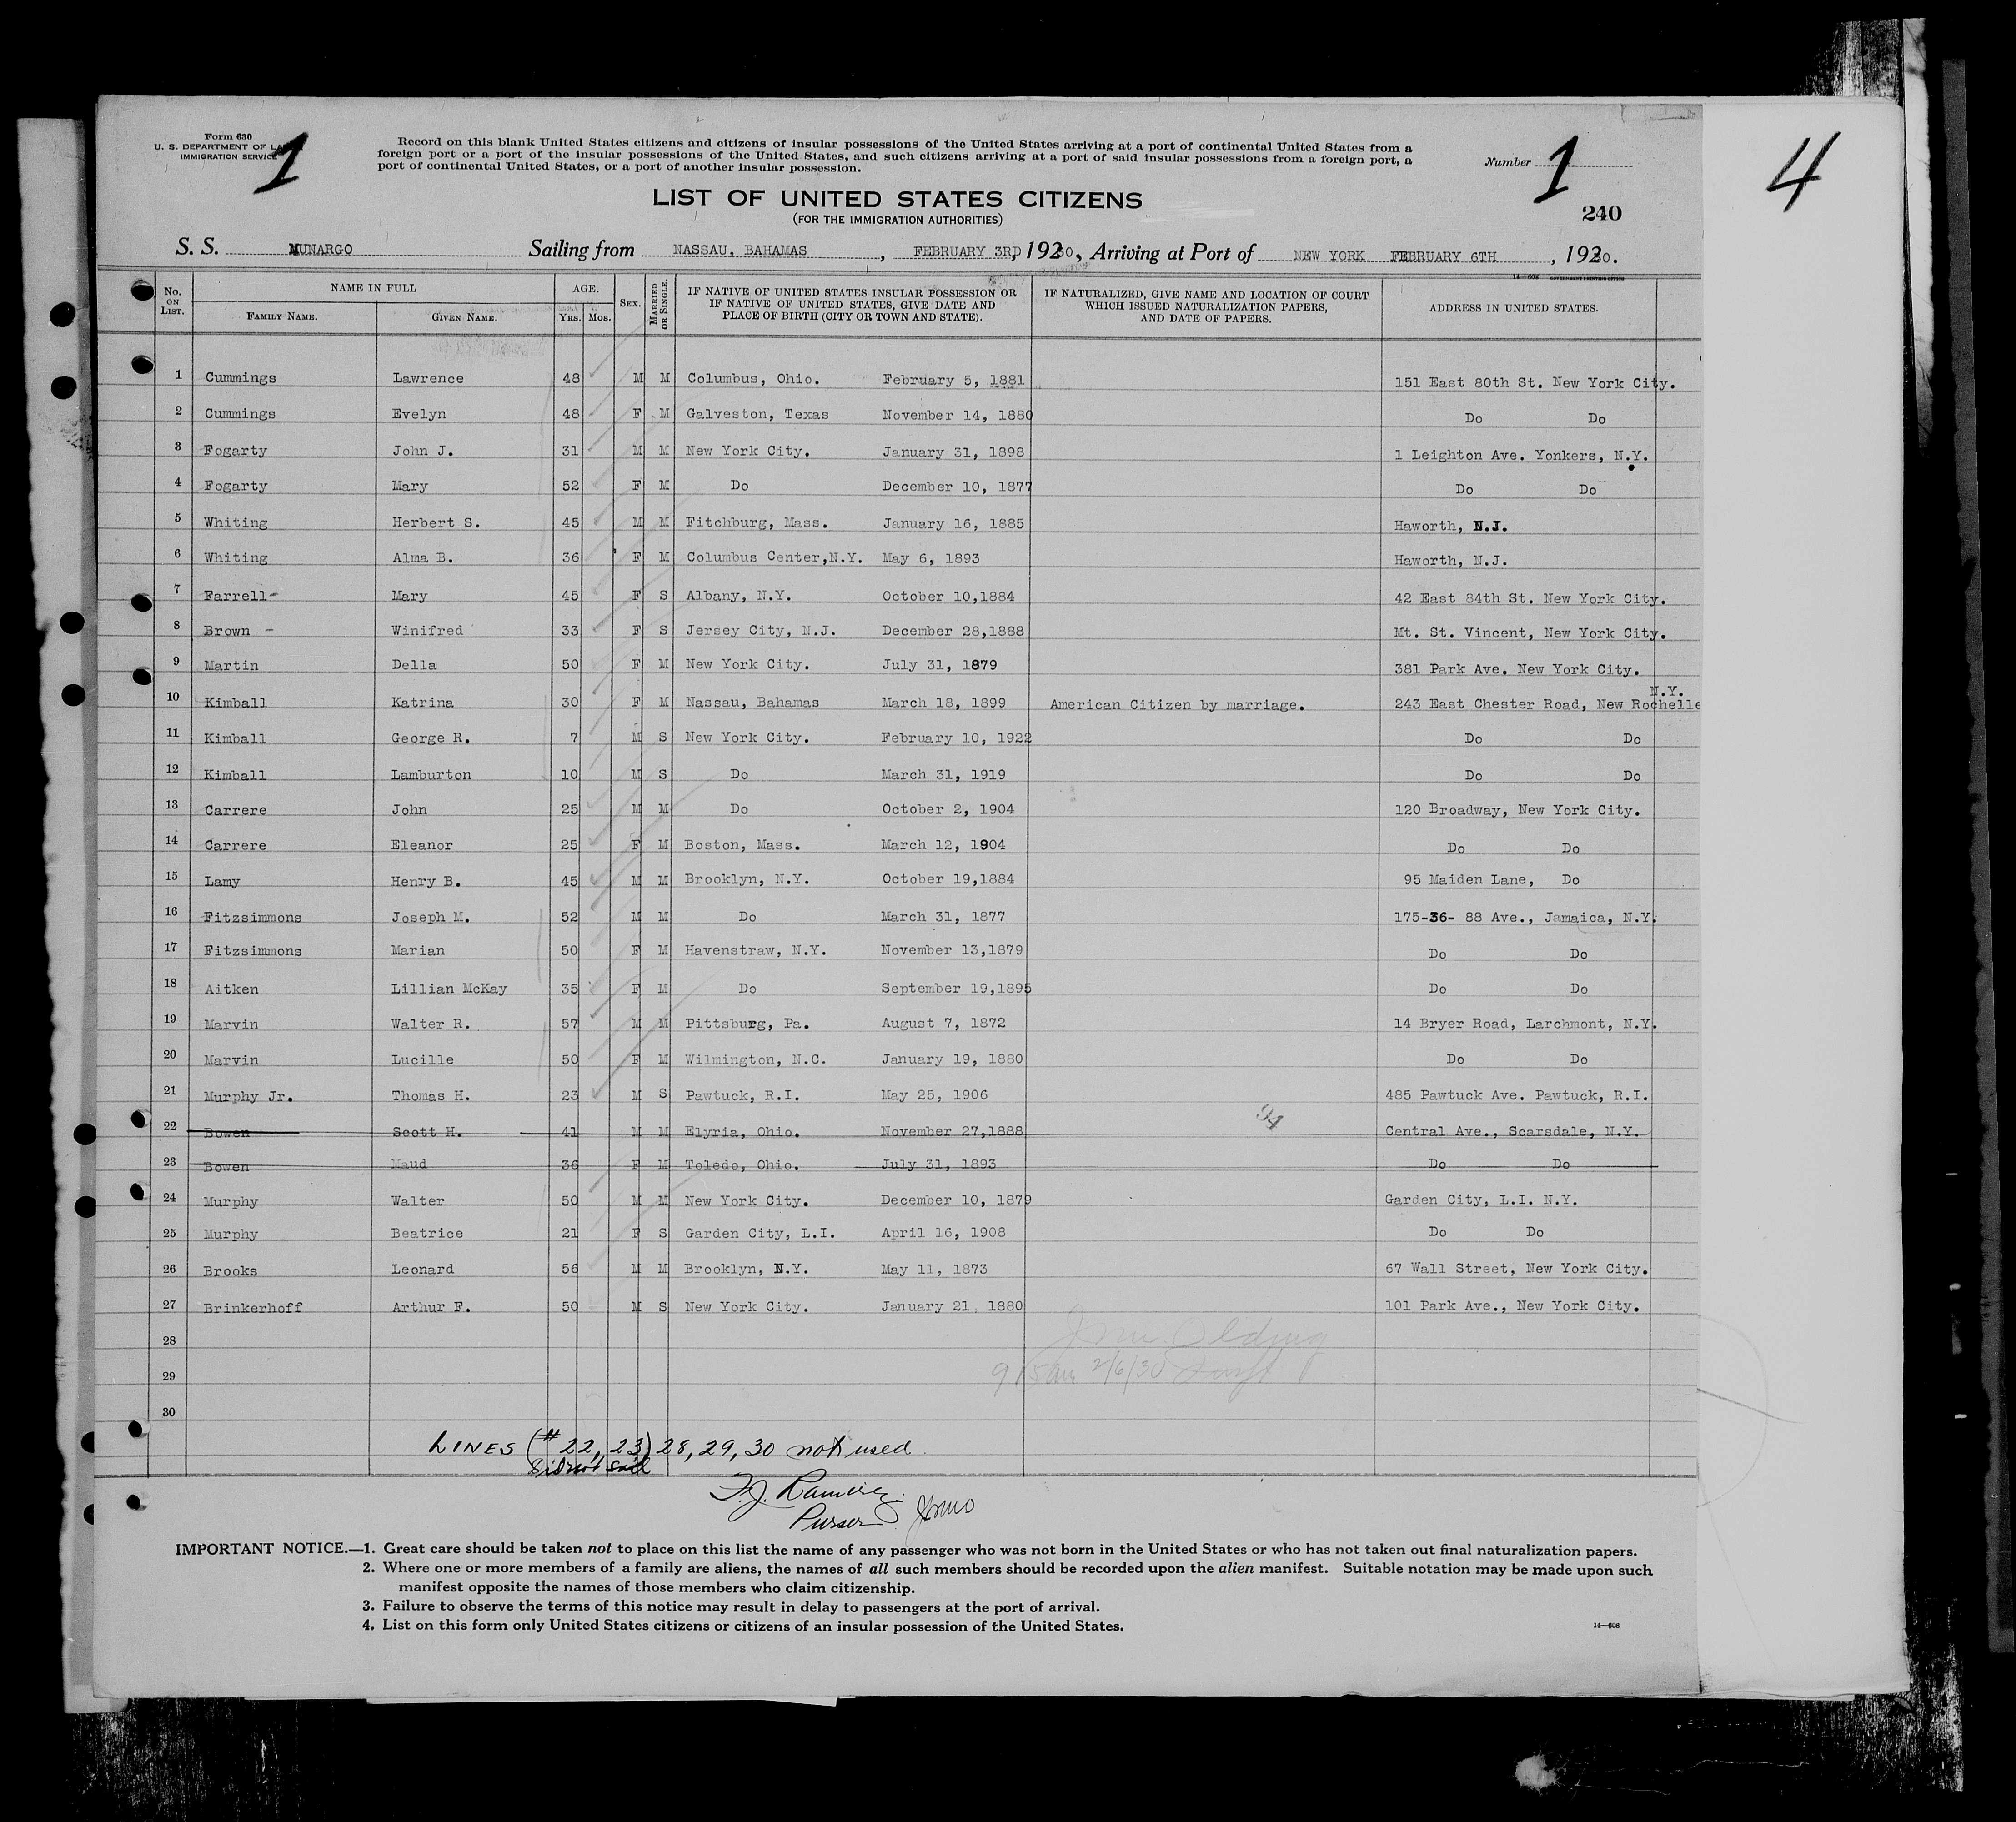 Form 630
U. S. DEPARTMENT OF LA
IMMIGRATION SERVICE
1
Record on this blank United States citizens and citizens of insular possessions of the United States arriving at a port of continental United States from a
foreign port or a port of the insular possessions of the United States, and such citizens arriving at a port of said insular possessions from a foreign port, a
port of continental United States, or a port of another insular possession.
Number 1
4
LIST OF UNITED STATES CITIZENS
(FOR THE IMMIGRATION AUTHORITIES)
240
S. S. MUNARGO Sailing from NASSAU, BAHAMAS, FEBRUARY 3RD, 1930, Arriving at Port of NEW YORK FEBRUARY 6TH, 1930.
No. ON LIST. NAME IN FULL FAMILY NAME. GIVEN NAME. AGE. YRS. MOS. SEX. MARRIED OR SINGLE. IF NATIVE OF UNITED STATES INSULAR POSSESSION OR IF NATIVE OF UNITED STATES, GIVE DATE AND PLACE OF BIRTH (CITY OR TOWN AND STATE). IF NATURALIZED, GIVE NAME AND LOCATION OF COURT WHICH ISSUED NATURALIZATION PAPERS, AND DATE OF PAPERS. ADDRESS IN UNITED STATES.
1 Cummings Lawrence 48 M M Columbus, Ohio. February 5, 1881 151 East 80th St. New York City.
2 Cummings Evelyn 48 F M Galveston, Texas November 14, 1880 Do Do
3 Fogarty John J. 31 M M New York City. January 31, 1898 1 Leighton Ave. Yonkers, N.Y.
4 Fogarty Mary 52 F M Do December 10, 1877 Do Do
5 Whiting Herbert S. 45 M M Fitchburg, Mass. January 16, 1885 Haworth, N.J.
6 Whiting Alma B. 36 F M Columbus Center,N.Y. May 6, 1893 Haworth, N.J.
7 Farrell- Mary 45 F S Albany, N.Y. October 10,1884 42 East 84th St. New York City.
8 Brown - Winifred 33 F S Jersey City, N.J. December 28,1888 Mt. St. Vincent, New York City.
9 Martin Della 50 F M New York City. July 31, 1879 381 Park Ave. New York City.
10 Kimball Katrina 30 F M Nassau, Bahamas March 18, 1899 American Citizen by marriage. 243 East Chester Road, New Rochelle N.Y.
11 Kimball George R. 7 M S New York City. February 10, 1922 Do Do
12 Kimball Lamburton 10 M S Do March 31, 1919 Do Do
13 Carrere John 25 M M Do October 2, 1904 120 Broadway, New York City.
14 Carrere Eleanor 25 F M Boston, Mass. March 12, 1904 Do Do
15 Lamy Henry B. 45 M M Brooklyn, N.Y. October 19,1884 95 Maiden Lane, Do
16 Fitzsimmons Joseph M. 52 M M Do March 31, 1877 175-36- 88 Ave., Jamaica, N.Y.
17 Fitzsimmons Marian 50 F M Havenstraw, N.Y. November 13,1879 Do Do
18 Aitken Lillian McKay 35 F M Do September 19,1895 Do Do
19 Marvin Walter R. 57 M M Pittsburg, Pa. August 7, 1872 14 Bryer Road, Larchmont, N.Y.
20 Marvin Lucille 50 F M Wilmington, N.C. January 19, 1880 Do Do
21 Murphy Jr. Thomas H. 23 M S Pawtuck, R.I. May 25, 1906 485 Pawtuck Ave. Pawtuck, R.I.
94
22 Bowen Scott H. 41 M M Elyria, Ohio. November 27,1888 Central Ave., Scarsdale, N.Y.
23 Bowen Maud 36 F M Toledo, Ohio. July 31, 1893 Do Do
24 Murphy Walter 50 M M New York City. December 10, 1879 Garden City, L.I. N.Y.
25 Murphy Beatrice 21 F S Garden City, L.I. April 16, 1908 Do Do
26 Brooks Leonard 56 M M Brooklyn, N.Y. May 11, 1873 67 Wall Street, New York City.
27 Brinkerhoff Arthur F. 50 M S New York City. January 21, 1880 101 Park Ave., New York City.
28
29 915 am 2/6/30
30
LINES (# 22, 23) 28, 29, 30 not used
did not sail
F.J. Ramirez
Purser
IMPORTANT NOTICE.—1. Great care should be taken not to place on this list the name of any passenger who was not born in the United States or who has not taken out final naturalization papers.
2. Where one or more members of a family are aliens, the names of all such members should be recorded upon the alien manifest. Suitable notation may be made upon such
manifest opposite the names of those members who claim citizenship.
3. Failure to observe the terms of this notice may result in delay to passengers at the port of arrival.
4. List on this form only United States citizens or citizens of an insular possession of the United States.
14—608